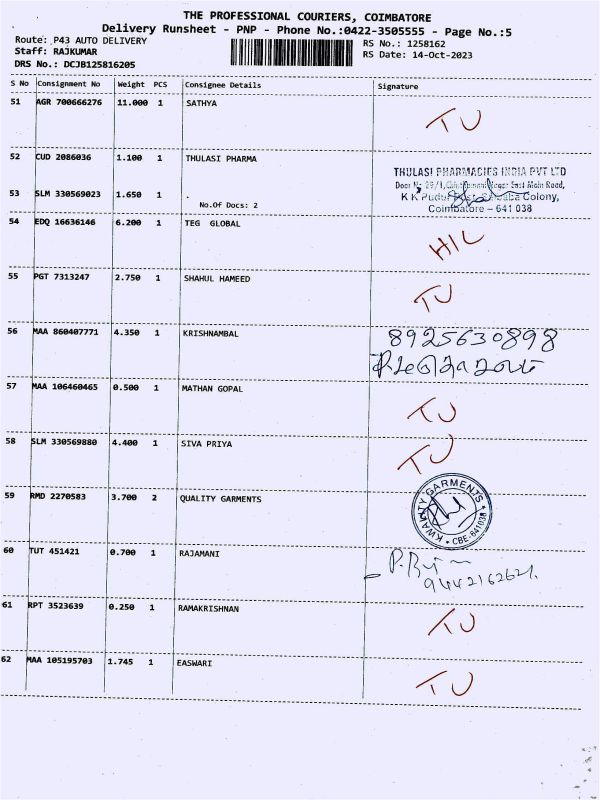 THE PROFESSIONAL COURIERS, COIMBATORE
Delivery Runsheet - PNP - Phone No.:0422-3505555 - Page No.:5
Route: P43 AUTO DELIVERY
Staff: RAJKUMAR
DRS No.: DCJB125816205
RS No.: 1258162
RS Date: 14-Oct-2023
S No Consignment No Weight PCS Consignee Details Signature
51 AGR 700666276 11.000 1 SATHYA TU
52 CUD 2086036 1.100 1 THULASI PHARMA
THULASI PHARMACIES INDIA PVT LTD
East Main Road,
Colony,
Coimbatore – 641 038
53 SLM 330569023 1.650 1 .
No.Of Docs: 2
54 EDQ 16636146 6.200 1 TEG GLOBAL HIL
55 PGT 7313247 2.750 1 SHAHUL HAMEED TU
56 MAA 860407771 4.350 1 KRISHNAMBAL 8925630898
57 MAA 106460465 0.500 1 MATHAN GOPAL TU
58 SLM 330569880 4.400 1 SIVA PRIYA TU
59 RMD 2270583 3.700 2 QUALITY GARMENTS KWALITY GARMENTS * CBE-641038 *
60 TUT 451421 0.700 1 RAJAMANI
61 RPT 3523639 0.250 1 RAMAKRISHNAN TU
62 MAA 105195703 1.745 1 EASWARI TU